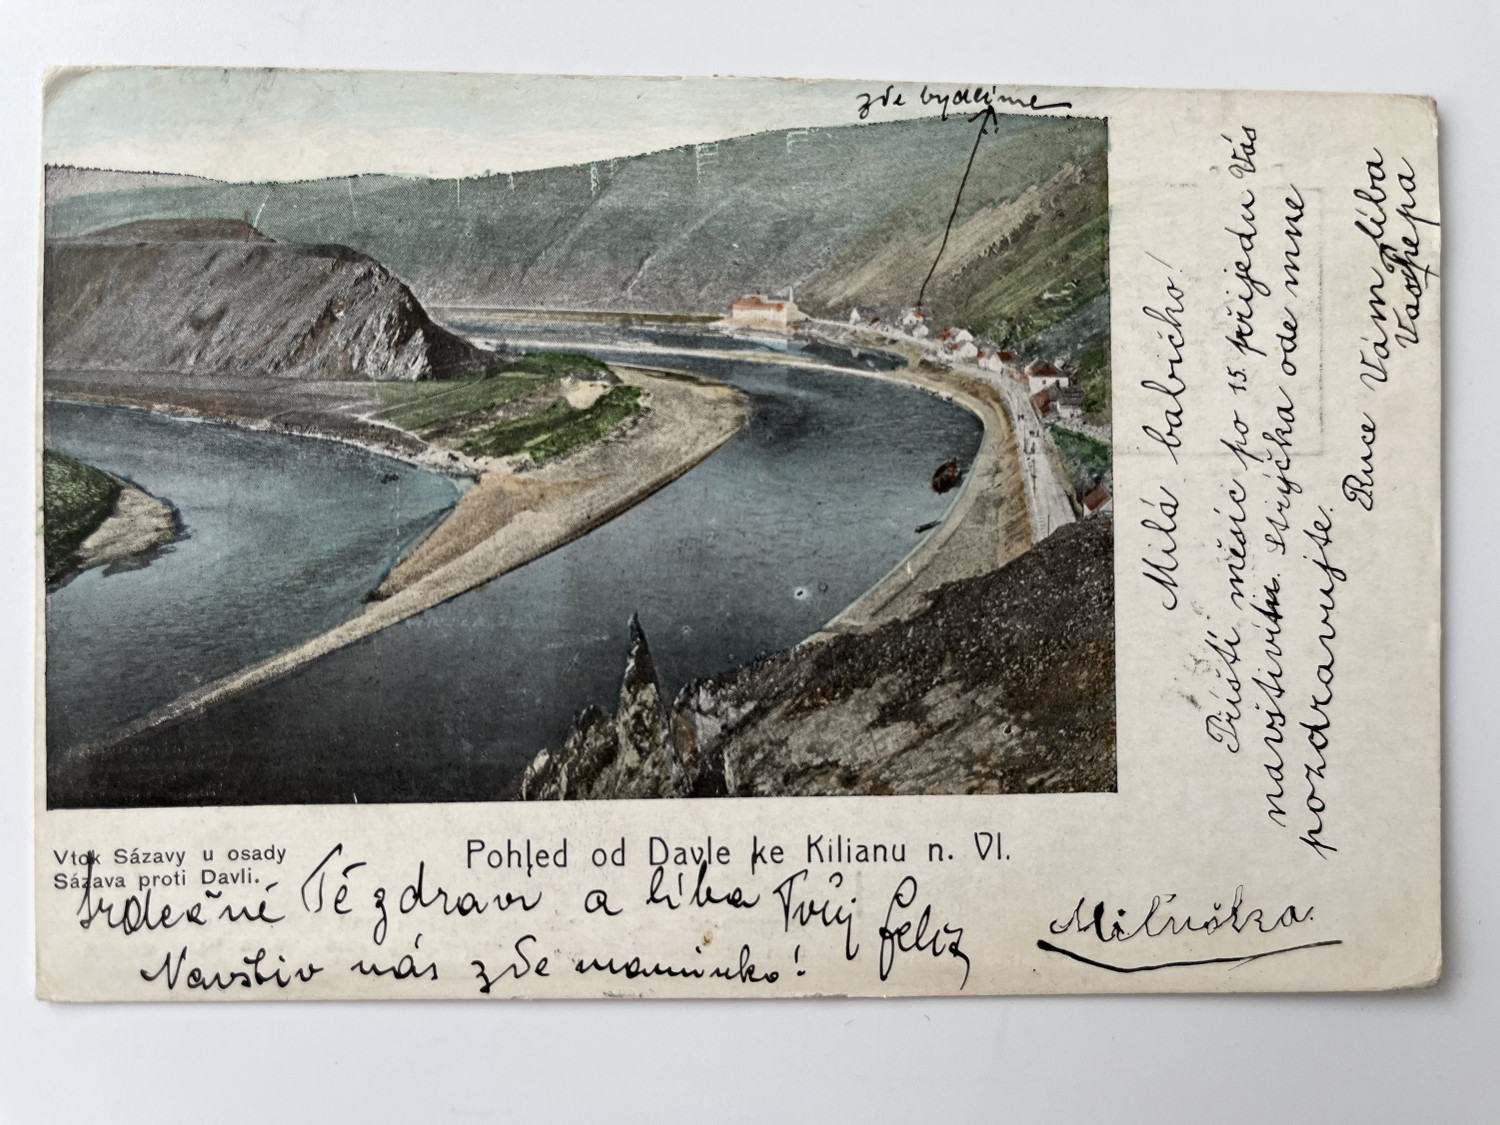 zde bydlíme
Milá babičko!
Příští měsíc po 15. přijedu Vás
navštiviti. Strýčka ode mne
pozdravujte.
Ruce Vám líbá
Vaše Pepa
Vtok Sázavy u osady
Sázava proti Davli.
Pohled od Davle ke Kilianu n. Vl.
Srdečně Tě zdraví a líbá Tvůj Felix
Navštiv nás zde maminko!
Miluška.